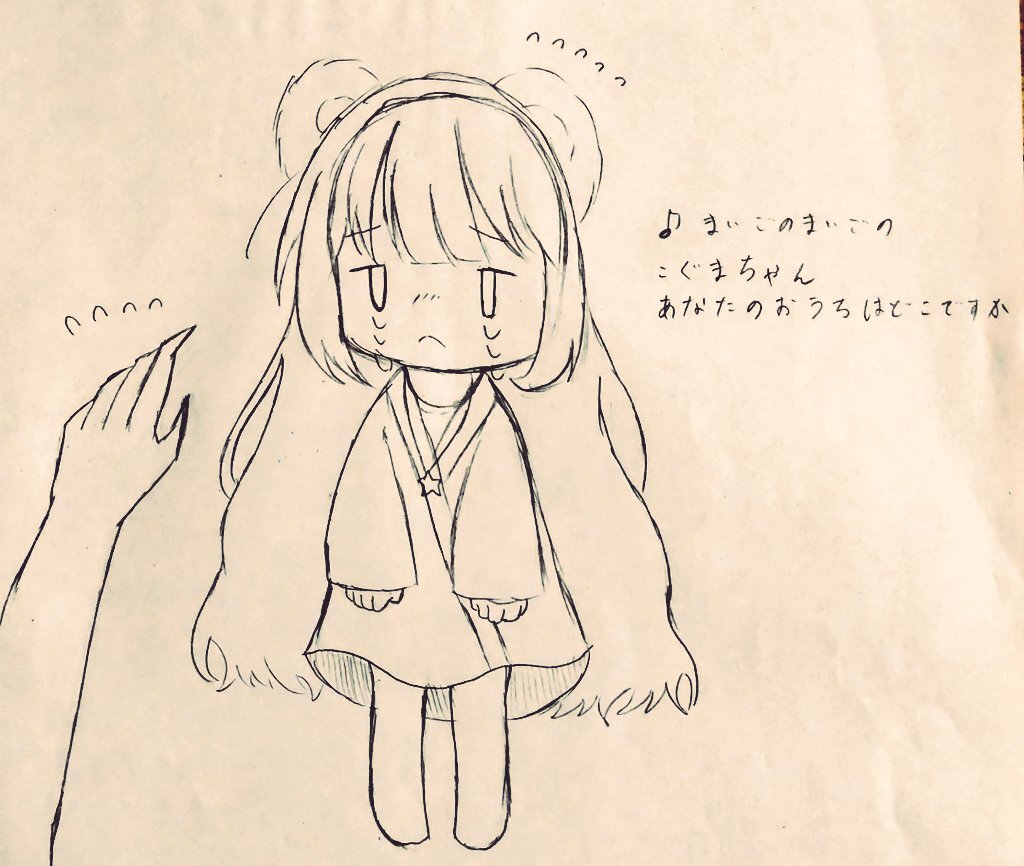 ♪まいごのまいごの
こぐまちゃん
あなたのおうちはどこですか